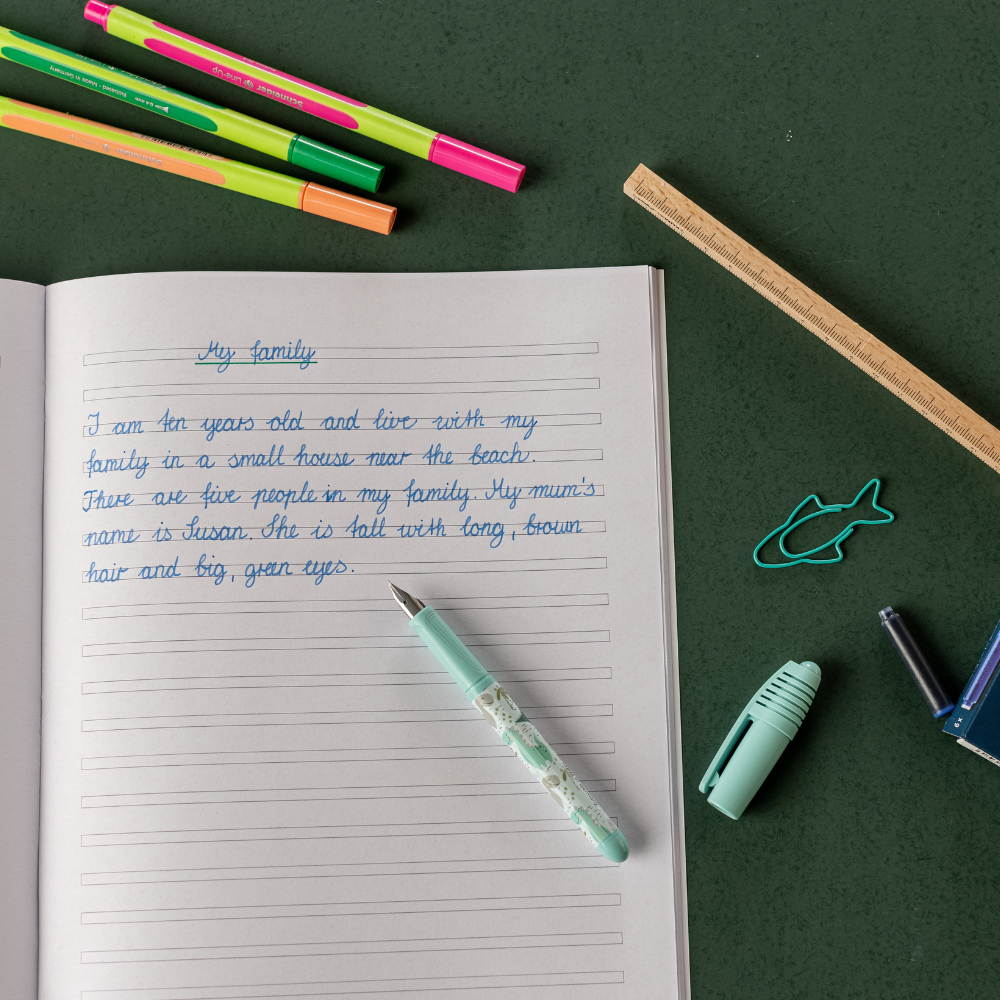 Schneider Line-Up
Pigmented - Made in Germany
Schneider
My family
I am ten years old and live with my
family in a small house near the beach.
There are five people in my family. My mum's
name is Susan. She is tall with long, brown
hair and big, green eyes.
6x